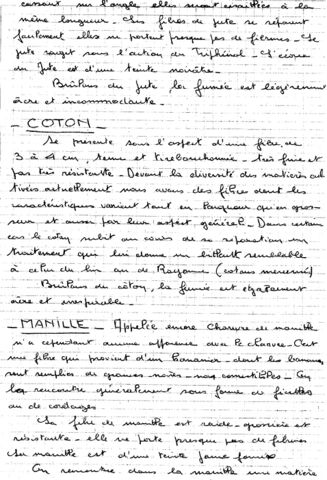 cassant sur l'angle elles seront cisaillées à la
même longueur - Les fibres de jute se séparent
facilement elles ne portent presque pas de fibrilles - Le
jute rougit sous l'action du Triphénol -
du Jute est d'une teinte noirâtre -
Brûlons du jute la fumée est légèrement
âcre et incommodante -
_ COTON _
Se présente sous l'aspect d'une fibre, de
3 à 4 cm, tenue et tirebouchonnée - très fine et
pas très résistante - Devant la diversité des matières cul
tivées actuellement nous avons des fibres dont les
caractéristiques varient tant en longueur qu'en gros-
seur et aussi par leur aspect général - Dans certain
cas le coton subit au cours de sa préparation un
traitement qui lui donne un brillant semblable
à celui du lin ou de Rayonne (cotons mercerisé)
Brûlons du coton, la fumée est également
âcre et
_ MANILLE _ Appelée encore Chanvre de manille
n'a cependant aucune apparence avec le chanvre - C'est
une fibre qui provient d'un bananier - dont les bananes
sont remplies de graines noires - non comestibles - On
la rencontre généralement sous forme de ficelles
ou de cordages
La fibre de manille est raide - grossière et
résistante - elle ne porte presque pas de fibrilles
La manille est d'une teinte jaune
On rencontre dans la manille une matière